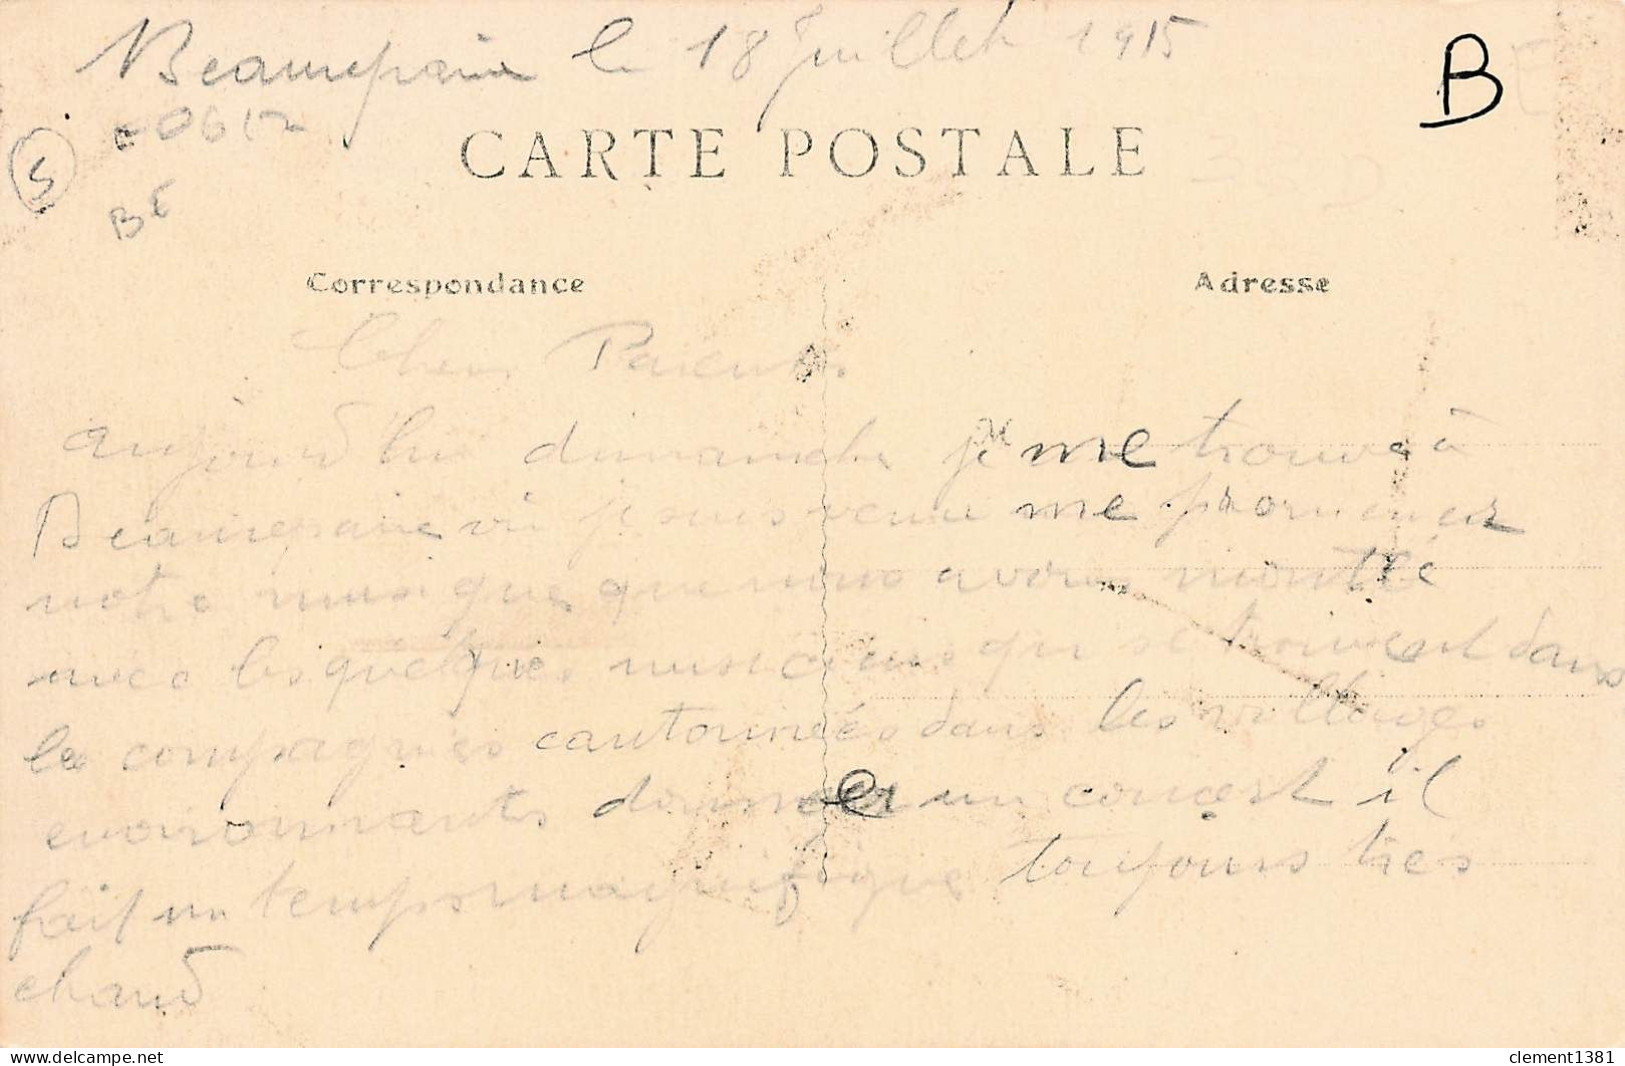 Beaurepaire le 18 Juillet 1915
B
60612
S
BE
CARTE POSTALE
Correspondance
Adresse
Chers Parents.
aujourd'hui dimanche je me trouve à
Beaurepaire je suis venu me promener
notre musique que nous avons monté
avec les quelques musiciens qui se trouvent dans
les compagnies cantonnées dans les villages
environnants donner un concert il
fait un temps magnifique toujours très
chaud
www.delcampe.net
clement1381